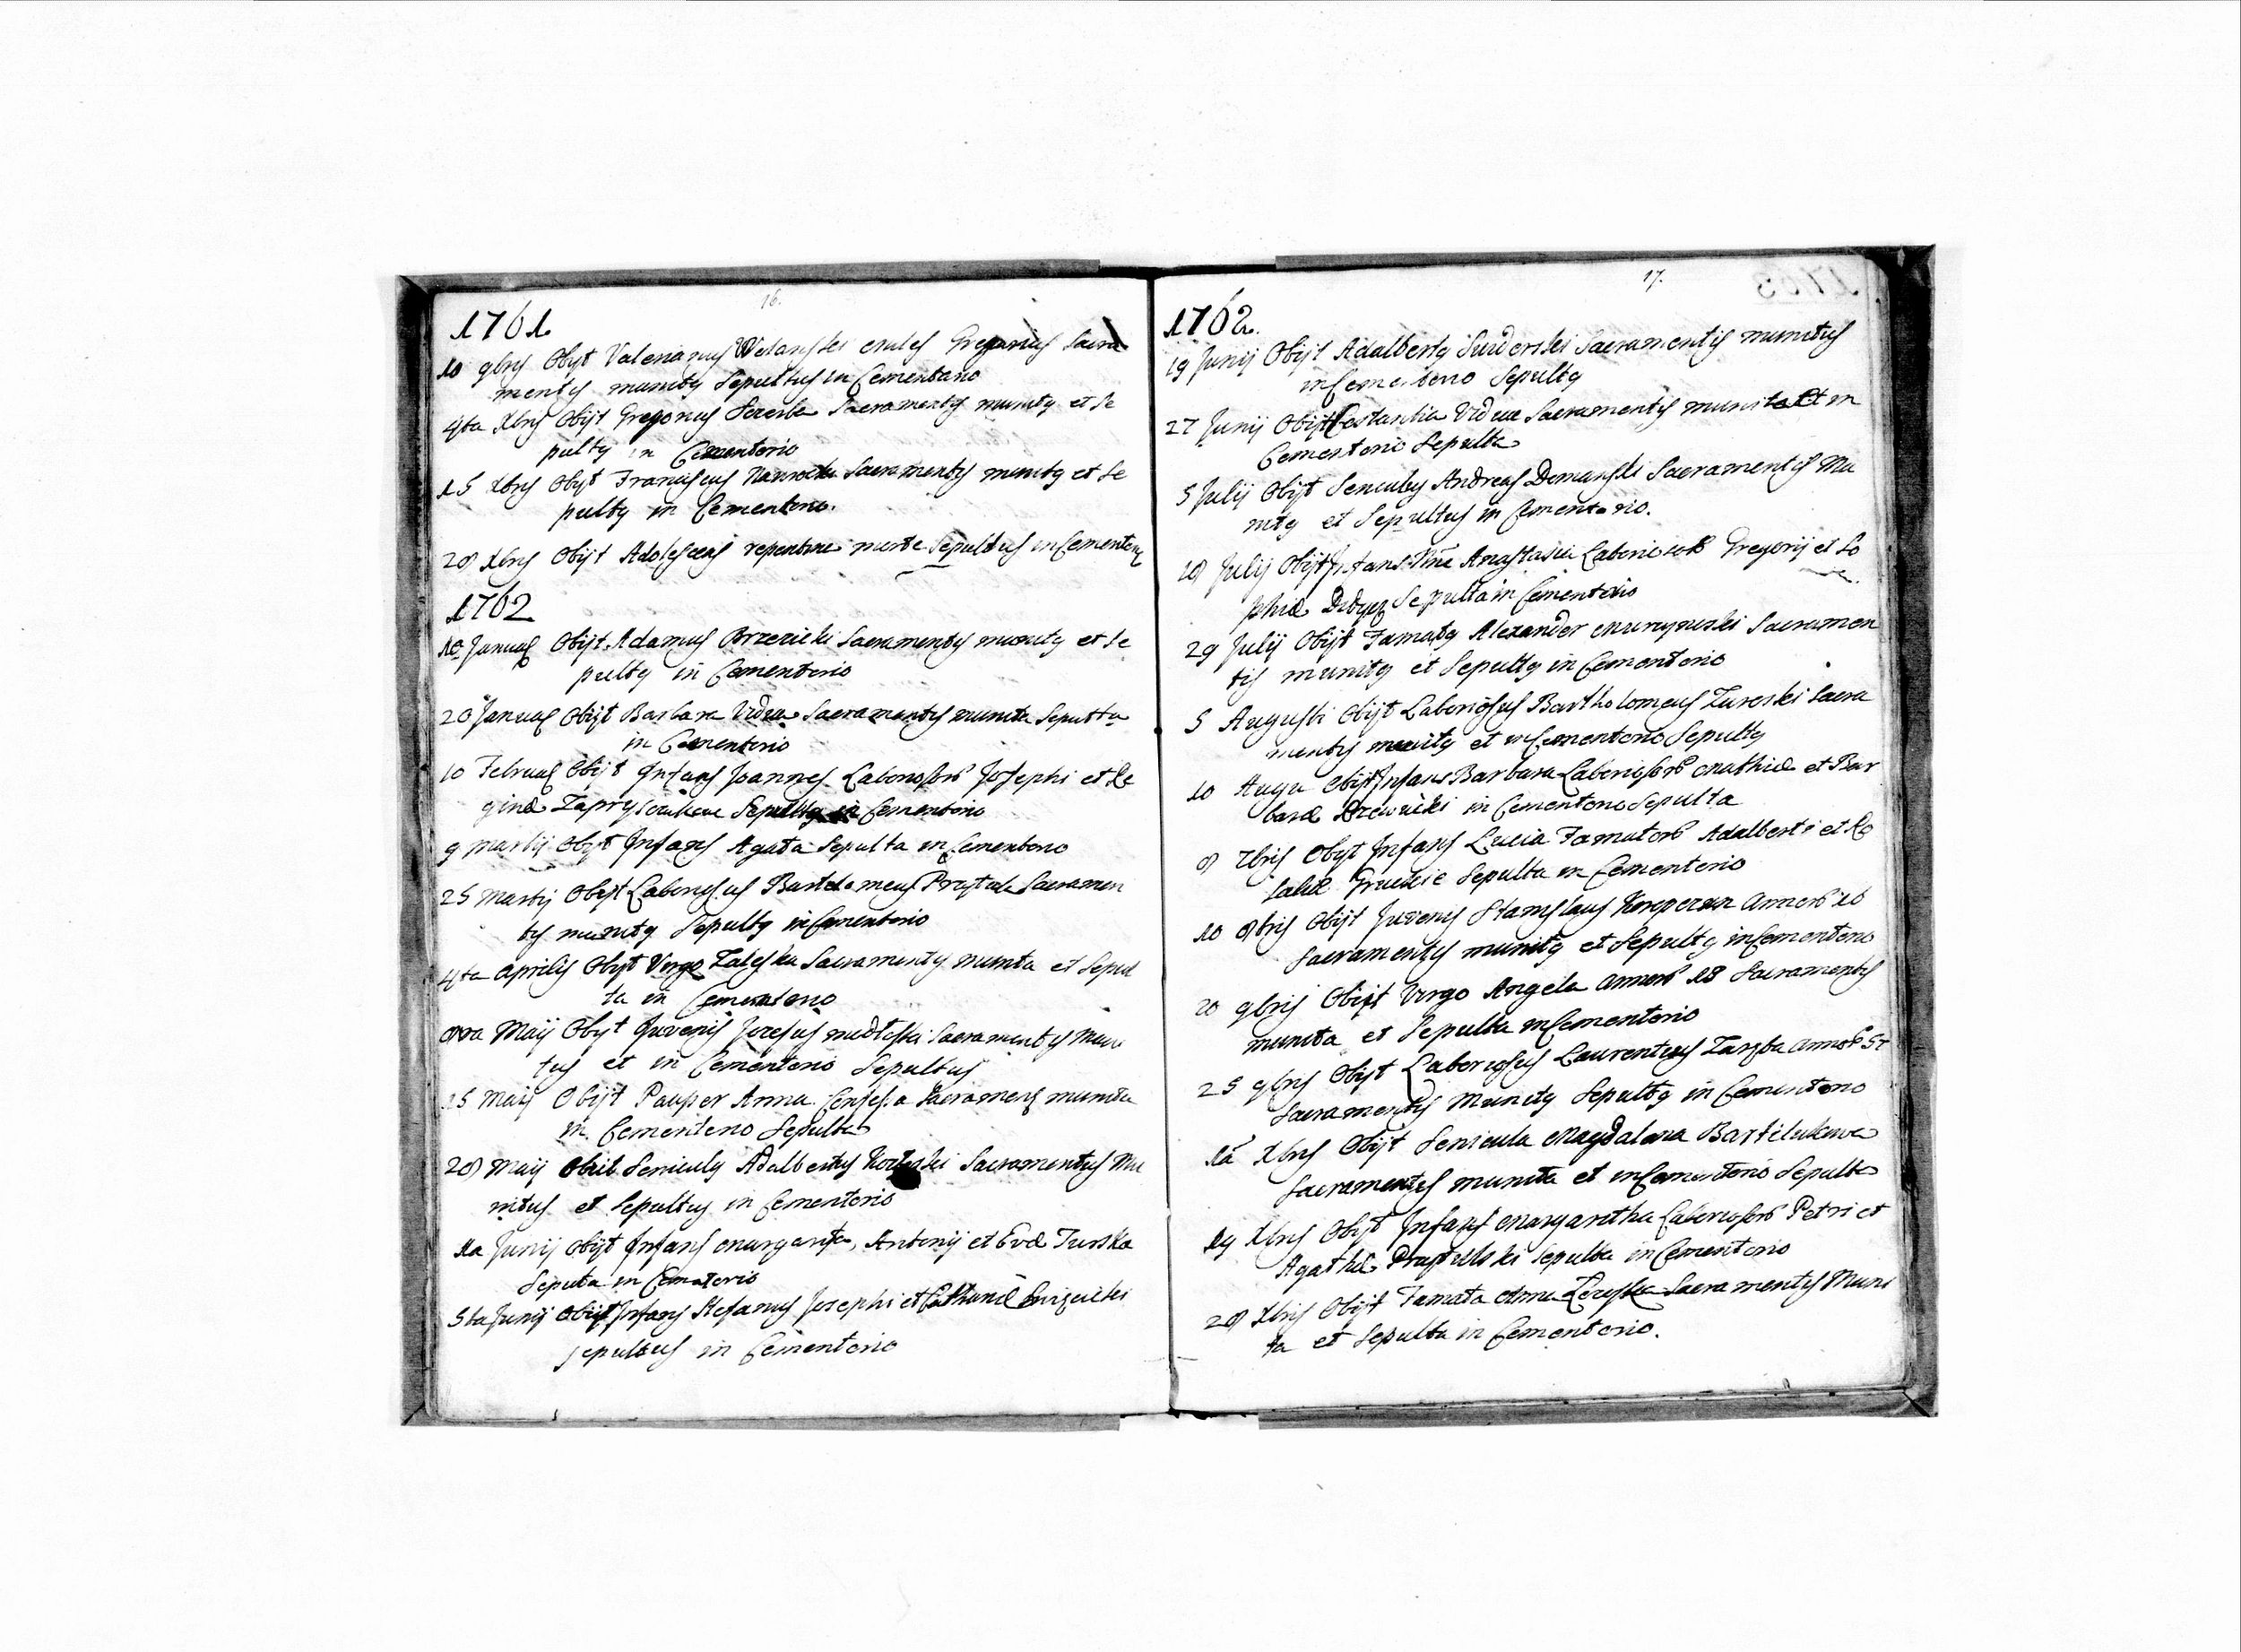 16.
1761
10 9bris Obijt Valerianus miles Gregarius Sacra
mentis munitq Sepultus in Cementario
4ta Xbris Obijt Gregorius Sacramentis munitq et Se
pultq in Cementerio
15 Xbris Obijt Franciscus Sacramentis munitq et Se
pultq in Cementerio.
28 Xbris Obijt Adolescens repentina morte Sepultus in Cementerio
1762
10 Januar Obijt Adamus Brzezicki Sacramentis munitq et Se
pultq in Cementerio
20 Januar Obijt Barbara Vidua Sacramentis munita Sepulta
in Cementerio
10 Februar Obijt Infans Joannes Laboriosorum Josephi et Re
gina Sepultq in Cementerio
9 Martij Obijt Infans Agata Sepulta in Cementerio
25 Martij Obijt Laboriosus Bartolomeus Sacramen
tis munitq Sepultq in Cementerio
4ta Aprilis Obijt Virgo Zaleska Sacramentis munita et Sepul
ta in Cementerio
8va Maij Obijt Juvenis Jozefus Sacramentis Muni
tus et in Cementerio Sepultus
15 Maij Obijt Pauper Anna Sacramen munita
in Cementerio Sepulta
28 Maij Obiit Seniculq Adalbertus Sacramentis Mu
nitus et Sepultus in Cementerio
1ma Junij Obijt Infans Margarita, Antonij et Evæ Turska
Sepulta in Cemeterio
5ta Junij Obijt Infans Stefanus Josephi et
Sepultus in Cementerio
17.
1762.
19 Junij Obijt Adalbertq Swiderski Sacramentis munitus
in Cementerio Sepultq
27 Junij Obijt Costantia Vidua Sacramentis munita Et in
Cementerio Sepulta
5 Julij Obijt Seniculus Andreas Domanski Sacramentis Mu
nitq et Sepultus in Cementario.
18 Julij Obijt Infans Nñe Anastasia Gregorij et So
phiæ Sepulta in Cementerio
29 Julij Obijt Famatq Alexander Sacramen
tis munitq et Sepultq in Cementerio
5 Augusti Obijt Laboriosus Bartholomeus Sacra
mentis munitq et in Cementerio Sepultq
10 Augu Obijt Infans Barbara Laboriosorum Mathiæ et Bar
baræ in Cementerio Sepulta
8 7bris Obijt Infans Lucia Famatorum Adalberti et Ro
saliæ Sepulta in Cementerio
10 8bris Obijt Juvenis Stanislaus annorum 16
Sacramentis munitq et Sepultq in Cementerio
20 9bris Obijt Virgo Angela annorum 18 Sacramentis
munita et Sepulta in Cementerio
25 9bris Obijt Laboriosus Laurentius Zaręba annorum 57
Sacramentis Munitq Sepultq in Cementerio
1ma Xbris Obijt Senicula Magdalena Bartilukowa
Sacramentis munita et in Cementerio Sepulta
19 Xbris Obijt Infans Margaretha Laboriosorum Petri et
Agathæ Sepulta in Cementerio
28 Xbris Obijt Famata Anna Sacramentis Muni
ta et Sepulta in Cementerio.